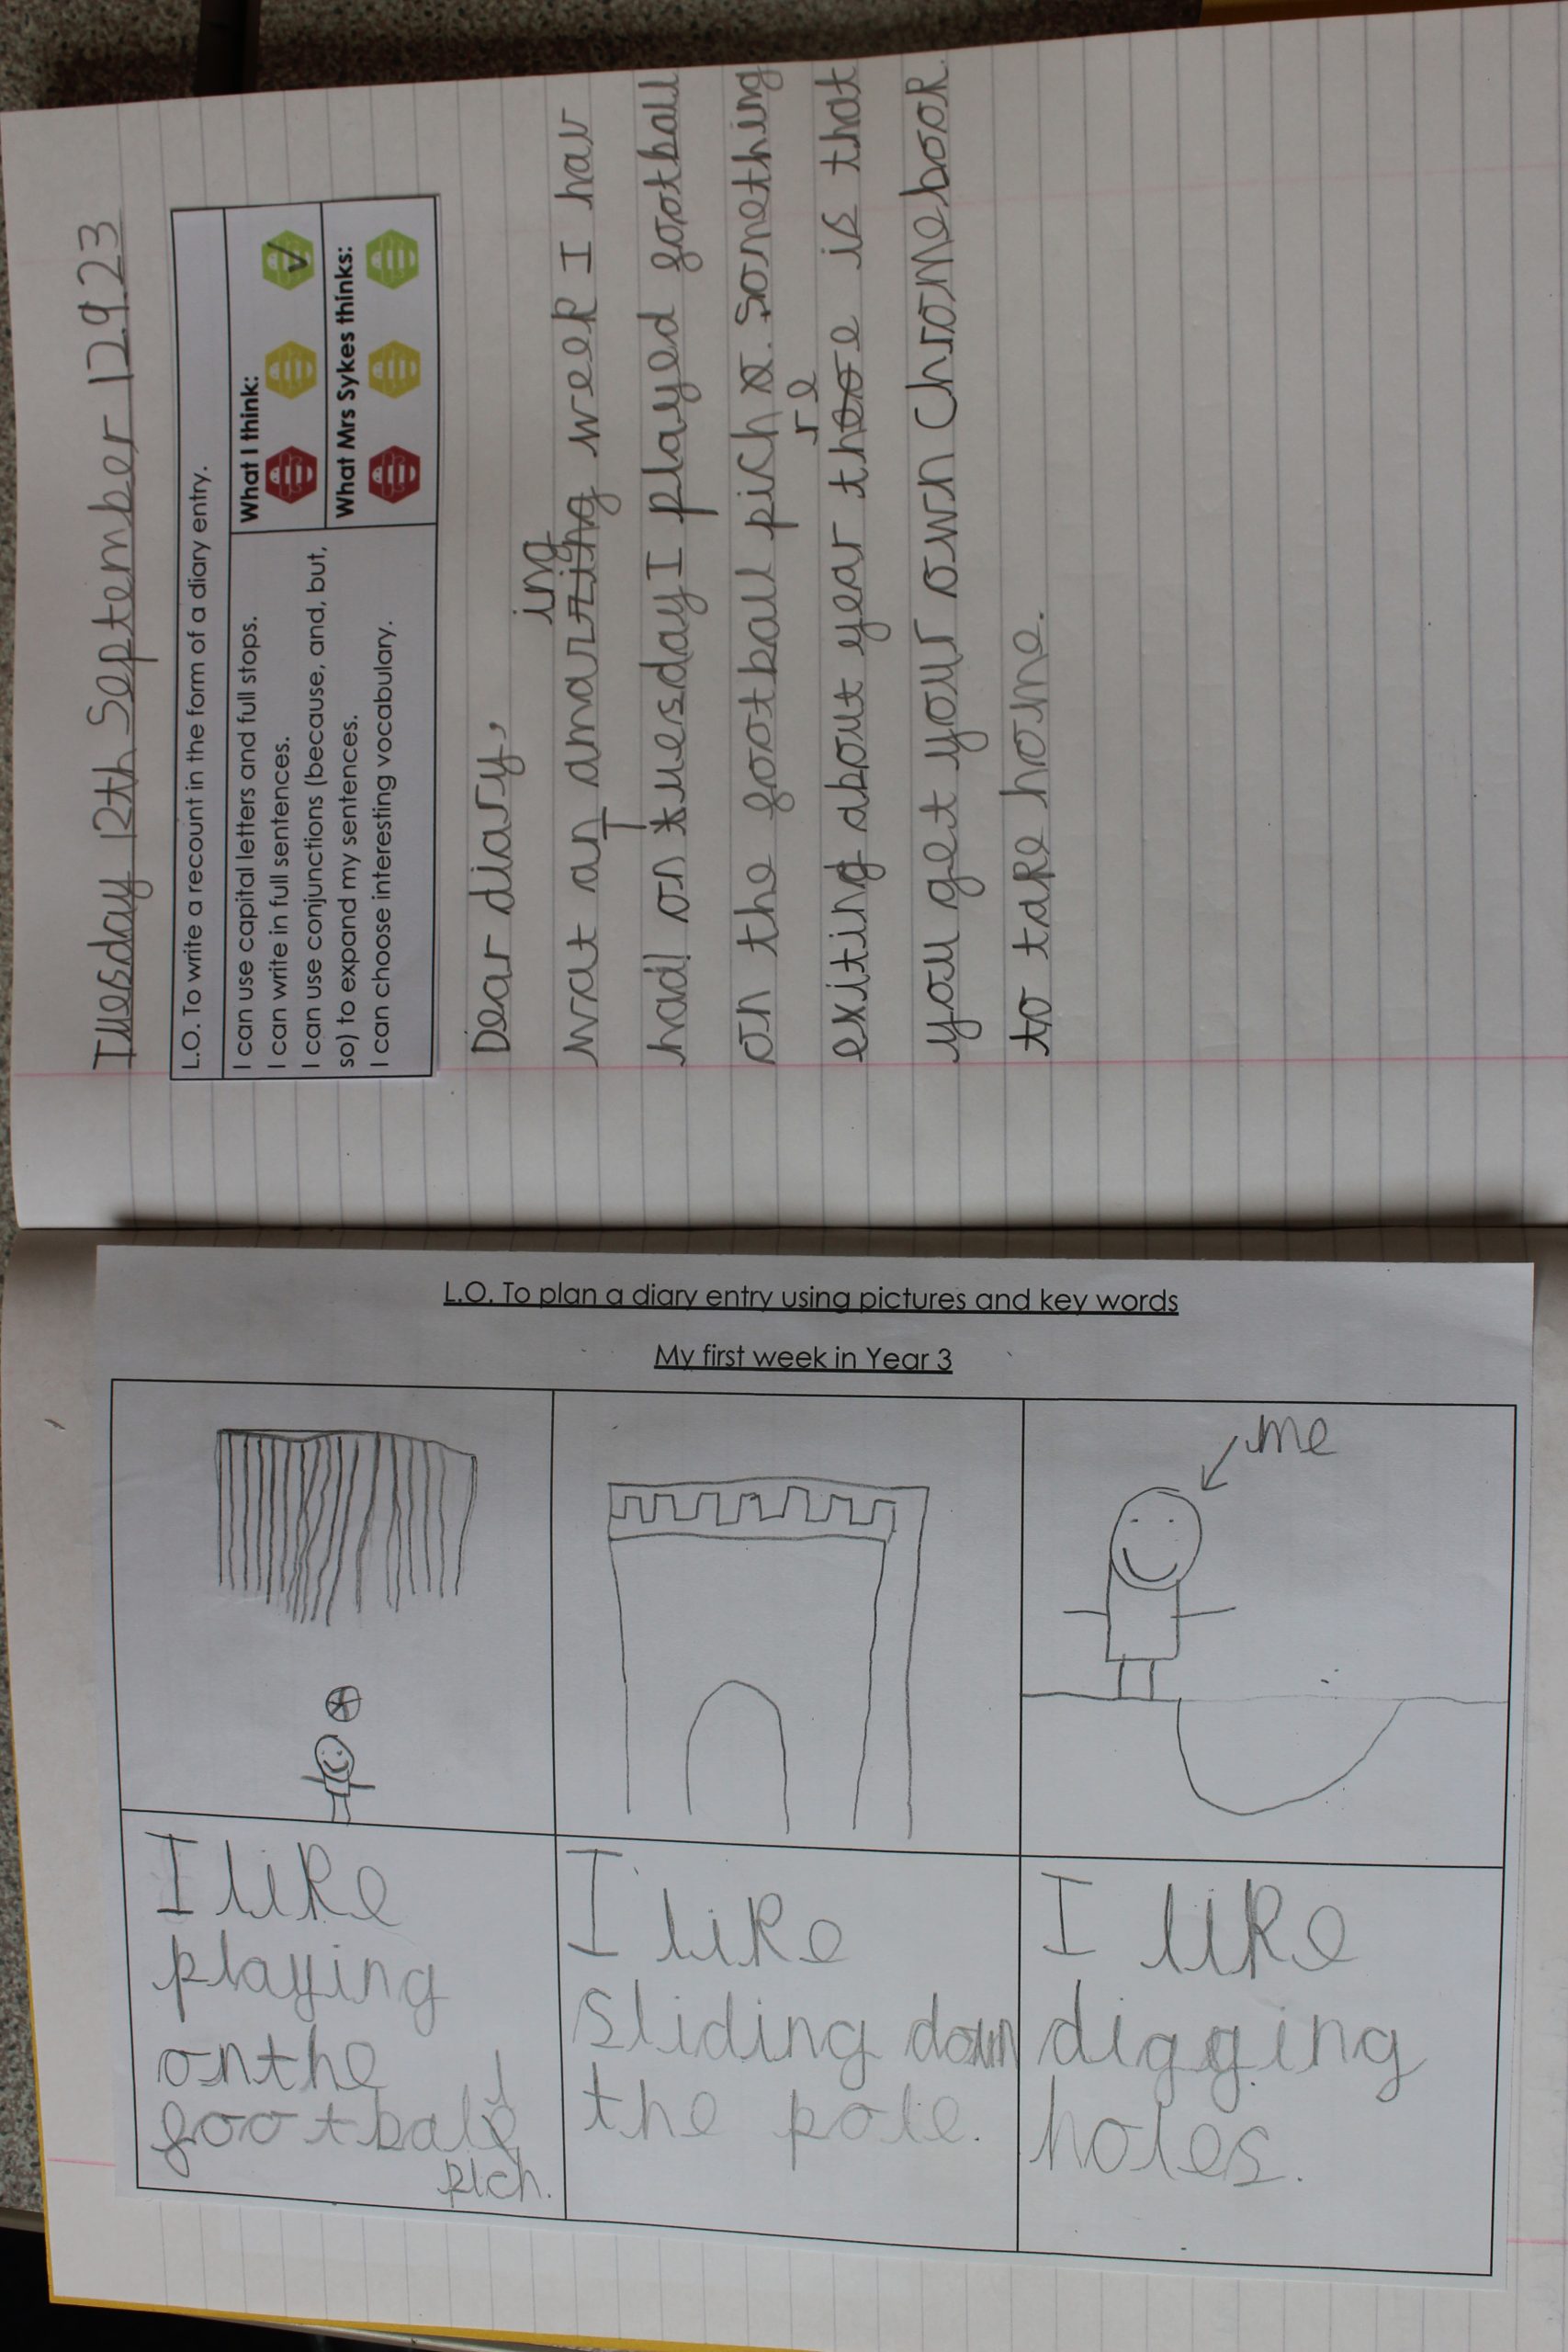 Tuesday 12th September 12 9 23
L.O. To write a recount in the form of a diary entry.
I can use capital letters and full stops.
I can write in full sentences.
I can use conjunctions (because, and, but,
so) to expand my sentences.
I can choose interesting vocabulary.
What I think:
What Mrs Sykes thinks:
Dear diary,
ing
wat an amazzing week I hav
T
had! on tuesday I played football
on the football pich a. Something
re
exiting about year thoe is that
you get your own Chromebook.
to take home.
L.O. To plan a diary entry using pictures and key words
My first week in Year 3
me
I like
playing
on the
football
pich.
I like
sliding down
the pole.
I like
digging
holes.